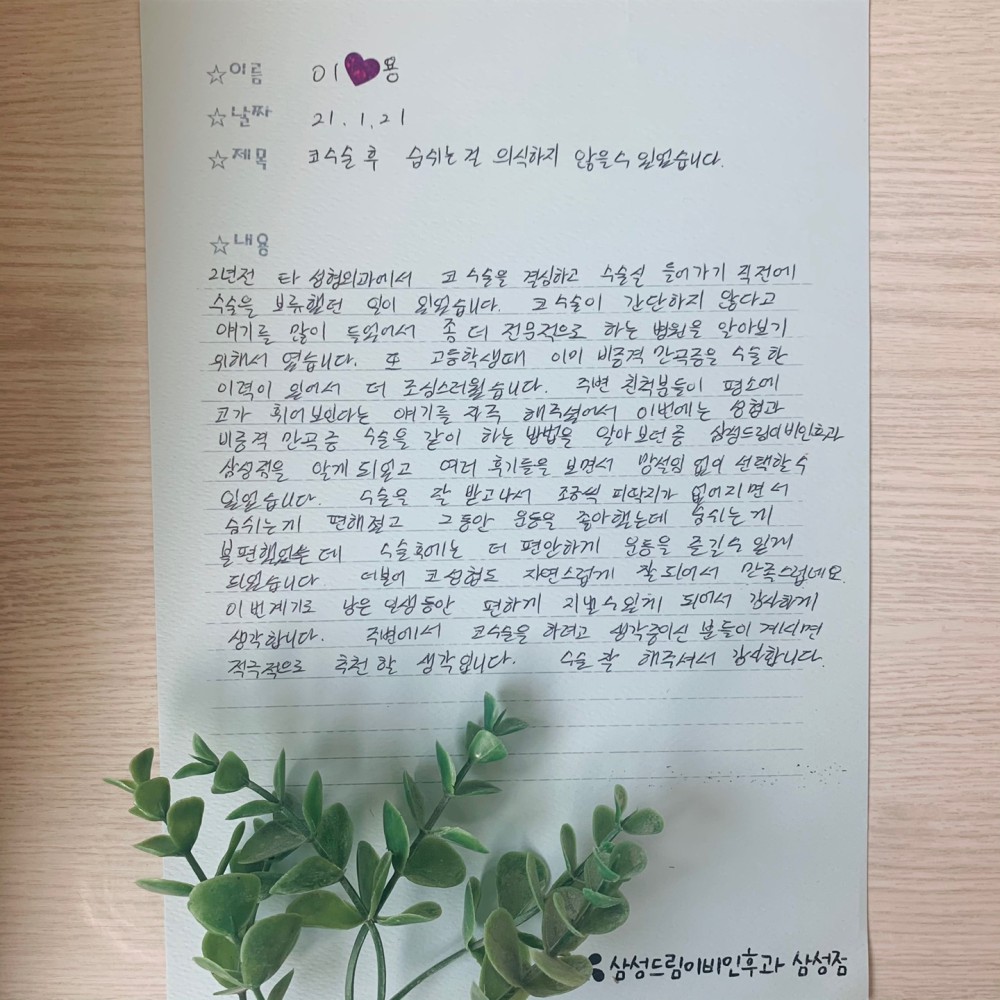 ☆이름 이♥용
☆날짜 21.1.21
☆제목 코수술 후 숨쉬는 걸 의식하지 않을 수 있었습니다.
☆내용
2년전 타 성형외과에서 코 수술을 결심하고 수술실 들어가기 직전에
수술을 보류했던 일이 있었습니다. 코 수술이 간단하지 않다고
얘기를 많이 들었어서 좀 더 전문적으로 하는 병원을 알아보기
위해서 였습니다. 또 고등학생때 이미 비중격 만곡증을 수술 한
이력이 있어서 더 조심스러웠습니다. 주변 친척분들이 평소에
코가 휘어보인다는 얘기를 자주 해주셨어서 이번에는 성형과
비중격 만곡증 수술을 같이 하는 방법을 알아보던 중 삼성드림이비인후과
삼성점을 알게 되었고 여러 후기들을 보면서 망설임 없이 선택할 수
있었습니다. 수술을 잘 받고나서 조금씩 피딱지가 없어지면서
숨쉬는게 편해졌고 그동안 운동을 좋아했는데 숨쉬는게
불편했었는데 수술후에는 더 편안하게 운동을 즐길수 있게
되었습니다 더불어 코 성형도 자연스럽게 잘 되어서 만족스럽네요.
이번계기로 남은 인생동안 편하게 지낼 수 있게 되어서 감사하게
생각합니다. 주변에서 코수술을 하려고 생각중이신 분들이 계시면
적극적으로 추천 할 생각입니다. 수술 잘 해주셔서 감사합니다.
삼성드림이비인후과 삼성점